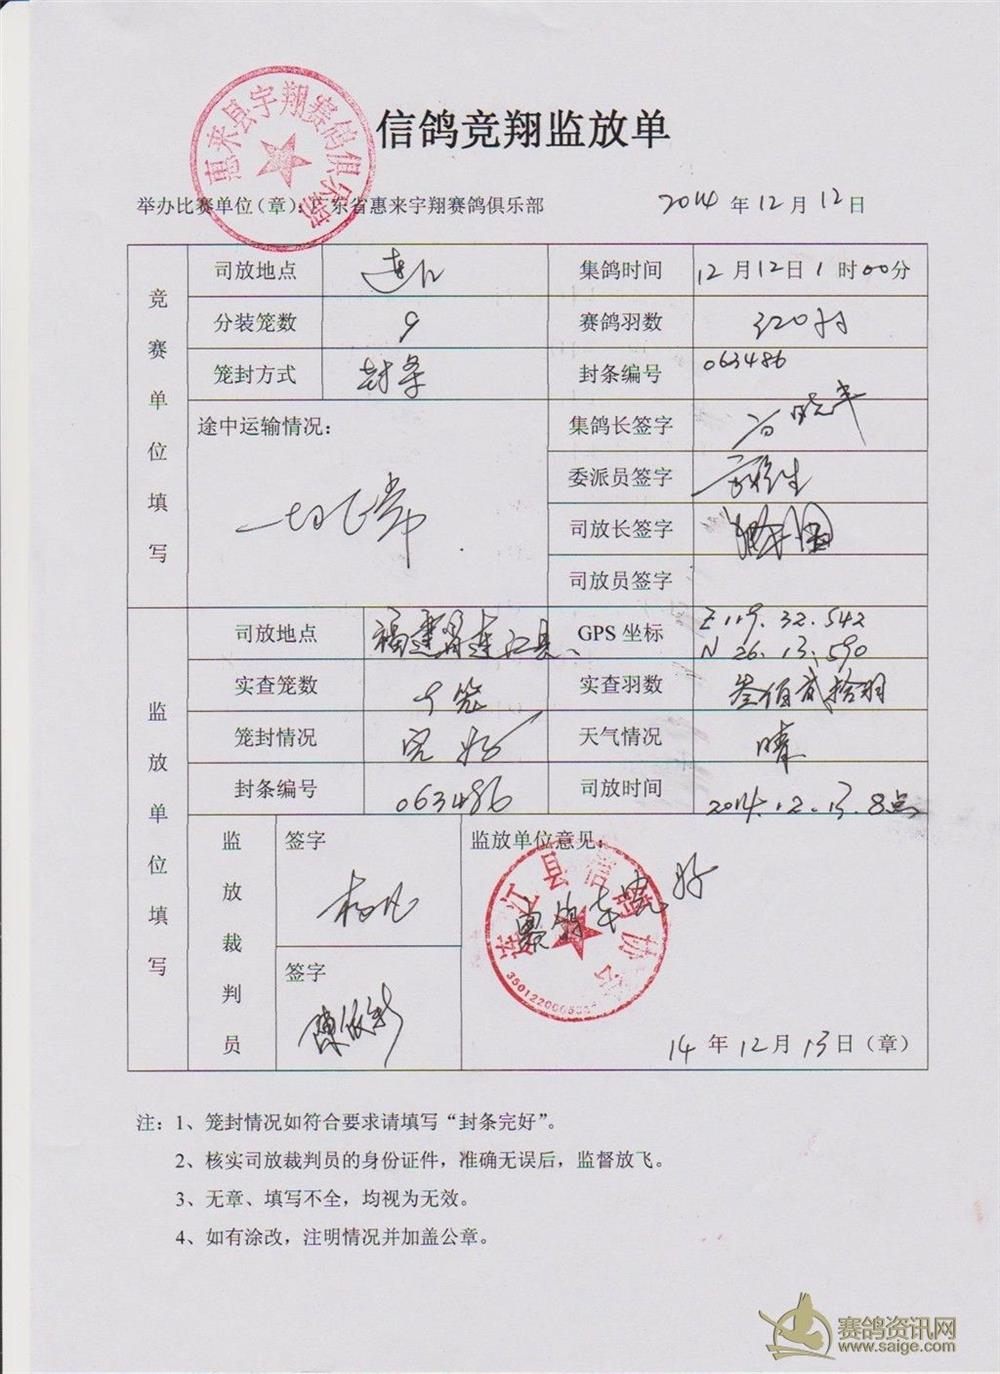 信鸽竞翔监放单
惠来县宇翔赛鸽俱乐部
举办比赛单位（章）：广东省惠来宇翔赛鸽俱乐部 2014 年 12 月 12 日
竞赛单位填写
司放地点 连江 集鸽时间 12 月 12 日 1 时 00 分
分装笼数 9 赛鸽羽数 320羽
笼封方式 封条 封条编号 063486
途中运输情况： 集鸽长签字
一切正常 委派员签字
司放长签字
司放员签字
监放单位填写
司放地点 福建省连江县、 GPS 坐标 E 119. 32. 542
N 26. 13. 590
实查笼数 实查羽数 叁佰贰拾羽
笼封情况 完好 天气情况 晴
封条编号 063486 司放时间 2014.12.13.8点
监放裁判员 签字 监放单位意见：
连江县信鸽协会
赛鸽车完好
签字
陈依新
14 年 12 月 13 日（章）
注：1、笼封情况如符合要求请填写“封条完好”。
2、核实司放裁判员的身份证件，准确无误后，监督放飞。
3、无章、填写不全，均视为无效。
4、如有涂改，注明情况并加盖公章。
赛鸽资讯网
www.saige.com